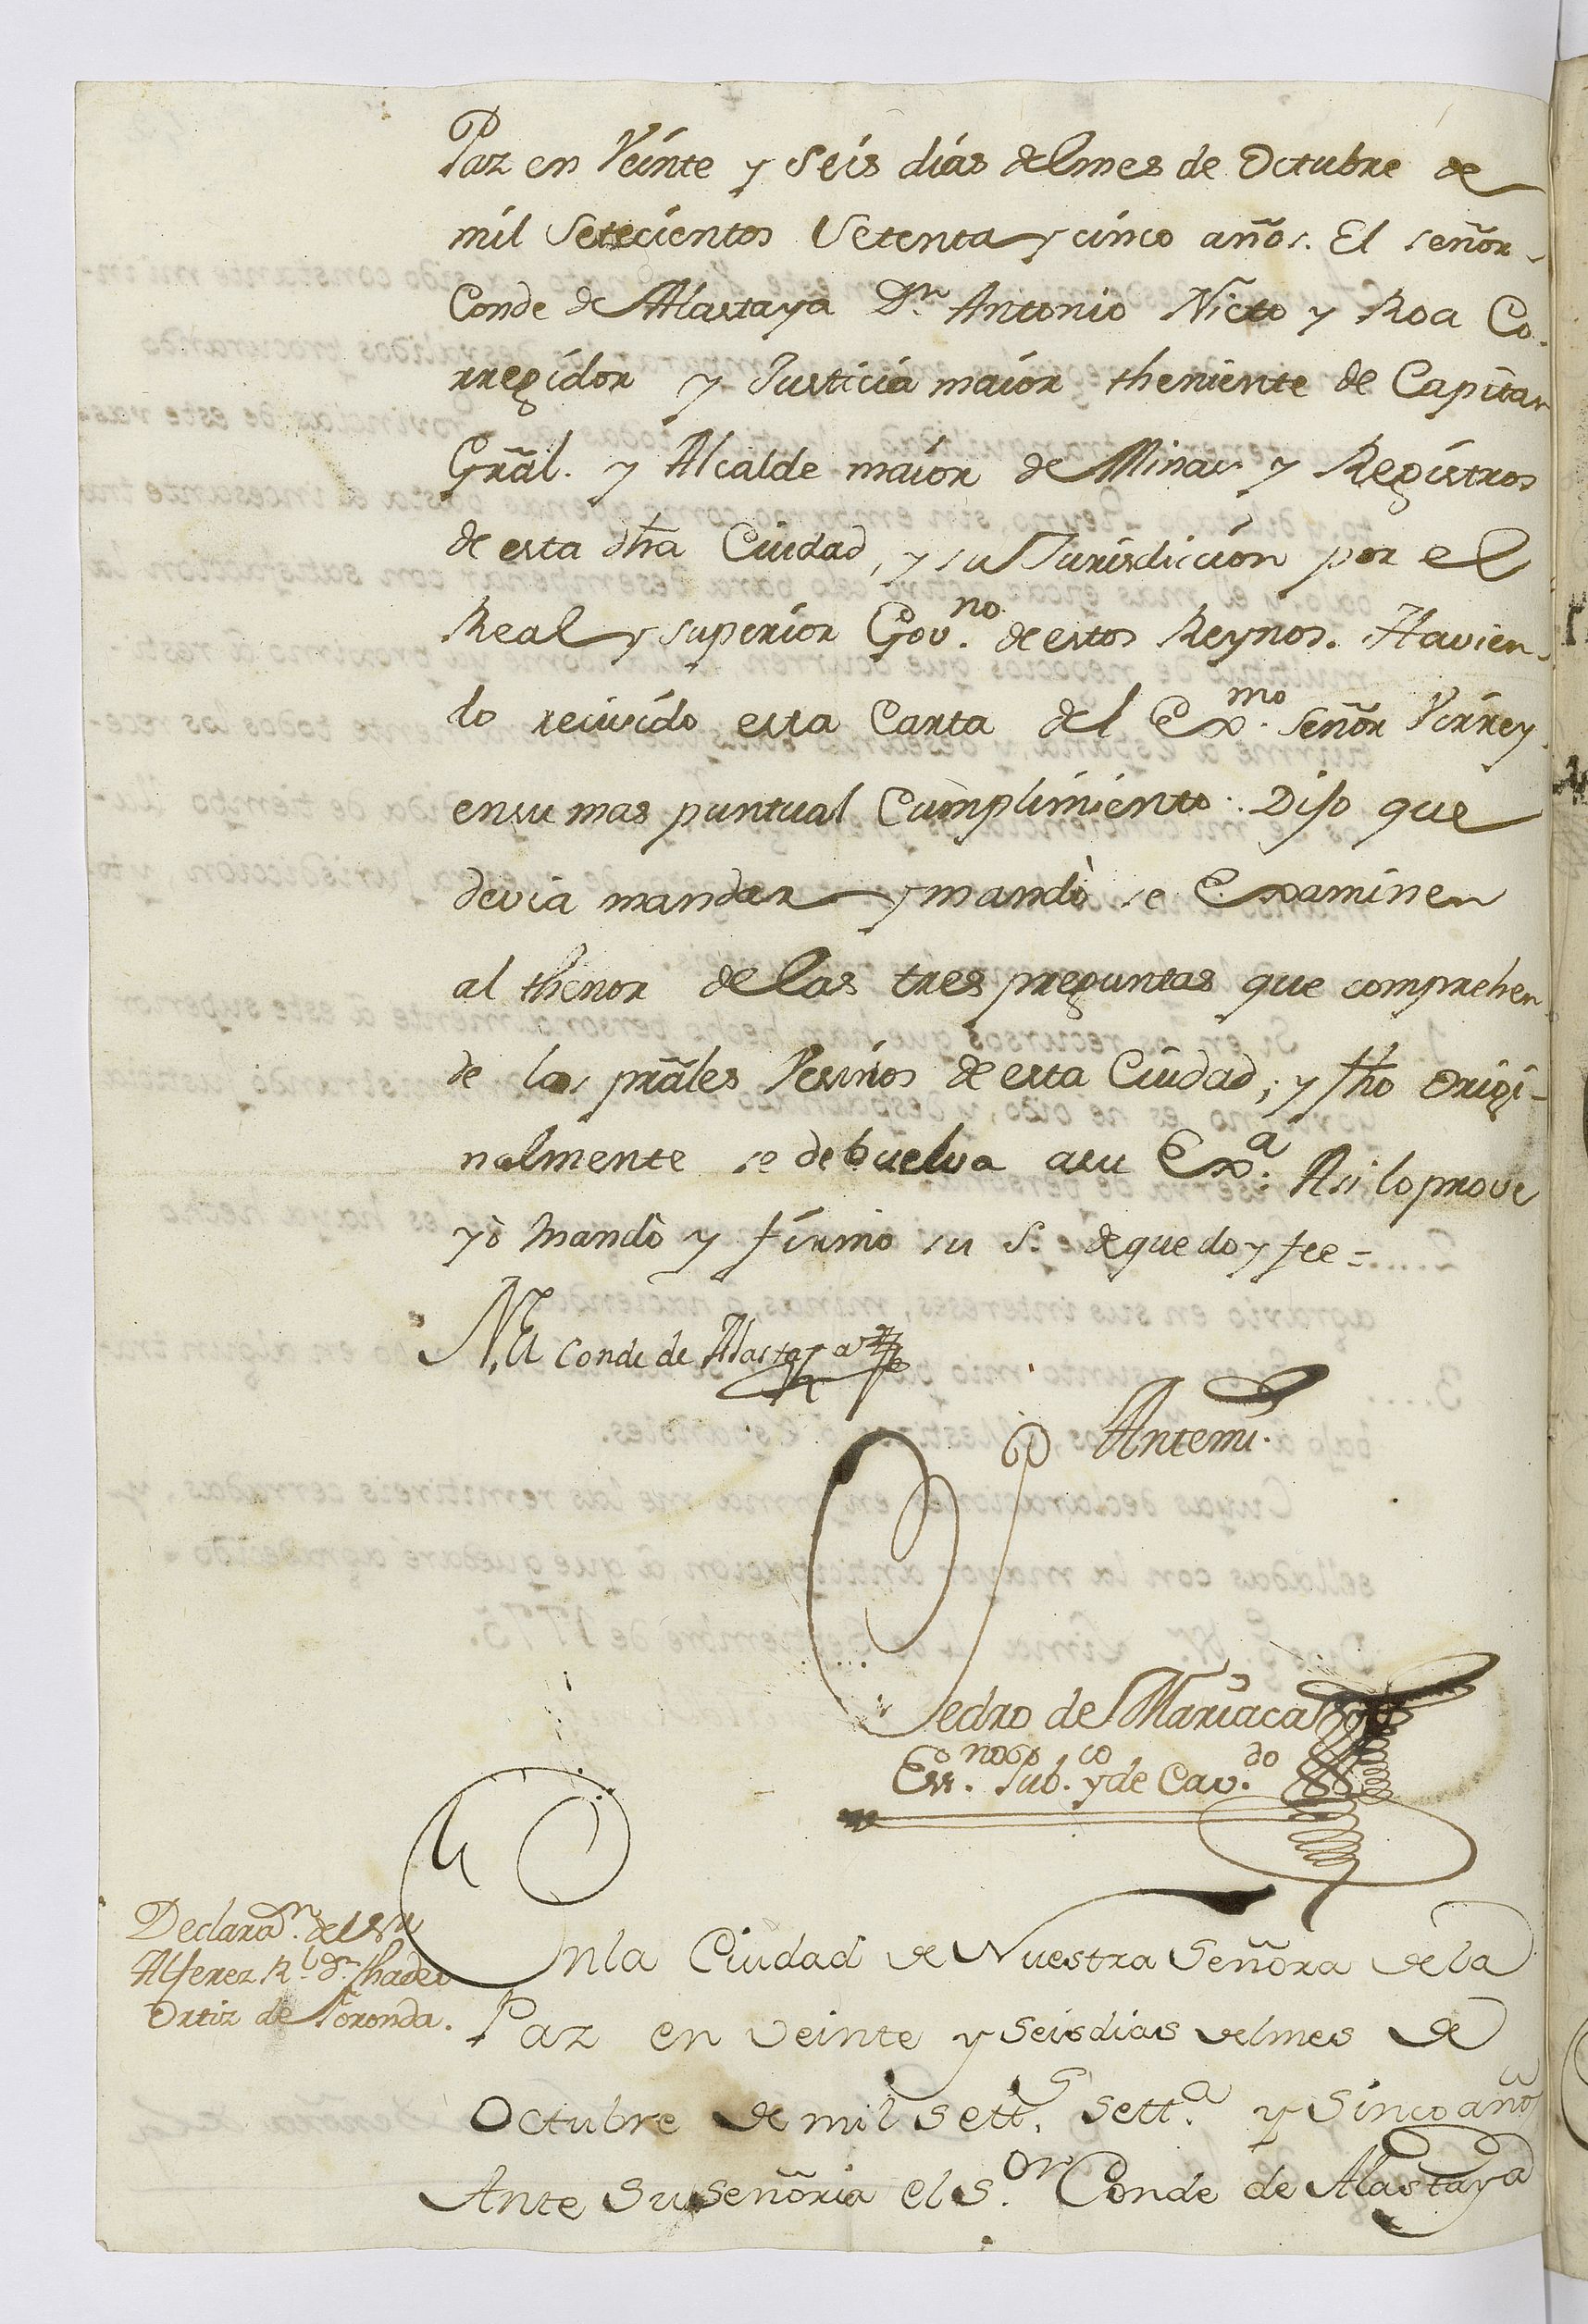 Paz en Veinte y Seis dias del mes de Octubre de
mil Setecientos Setenta y cinco años. El señor
Conde de Alastaya Dn. Antonio Nieto y Roa Co-
rregidor y Justicia maior theniente de Capitan
Grāl. y Alcalde maior de Minas y Registros
de esta dha Ciudad, y su Jurisdicion por el
Real y superior Gov.no de estos Reynos. Havien-
do recivido esta Carta del Ex.mo señor Virrey
en su mas puntual Cumplimiento: Dijo que
devia mandar y mandò se Examinen
al thenor de las tres preguntas que comprehen
de los prāles Vesinos de esta Ciudad; y fho origi-
nalmente se debuelva a su Ex.a: Asi lo prove
yò mandò y firmò su S.a de que doy fee=
El Conde de Alastaya
Antemi.
Pedro de Mariaca
Ess.no pub.co y de Cav.do
Declaran. del Sr.
Alferez Rl. Dn. Thadeo
Ortiz de Foronda.
En la Ciudad de Nuestra Señora de la
Paz en veinte y seis dias del mes de
Octubre de mil sett.s sett.a y sinco años
Ante su señoria el S.or Conde de Alastaya